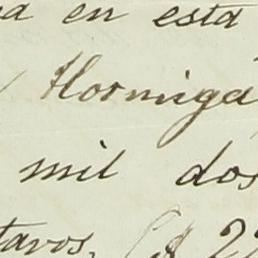 a en esta
Hormiga
mil dos
tavos, ($ 22